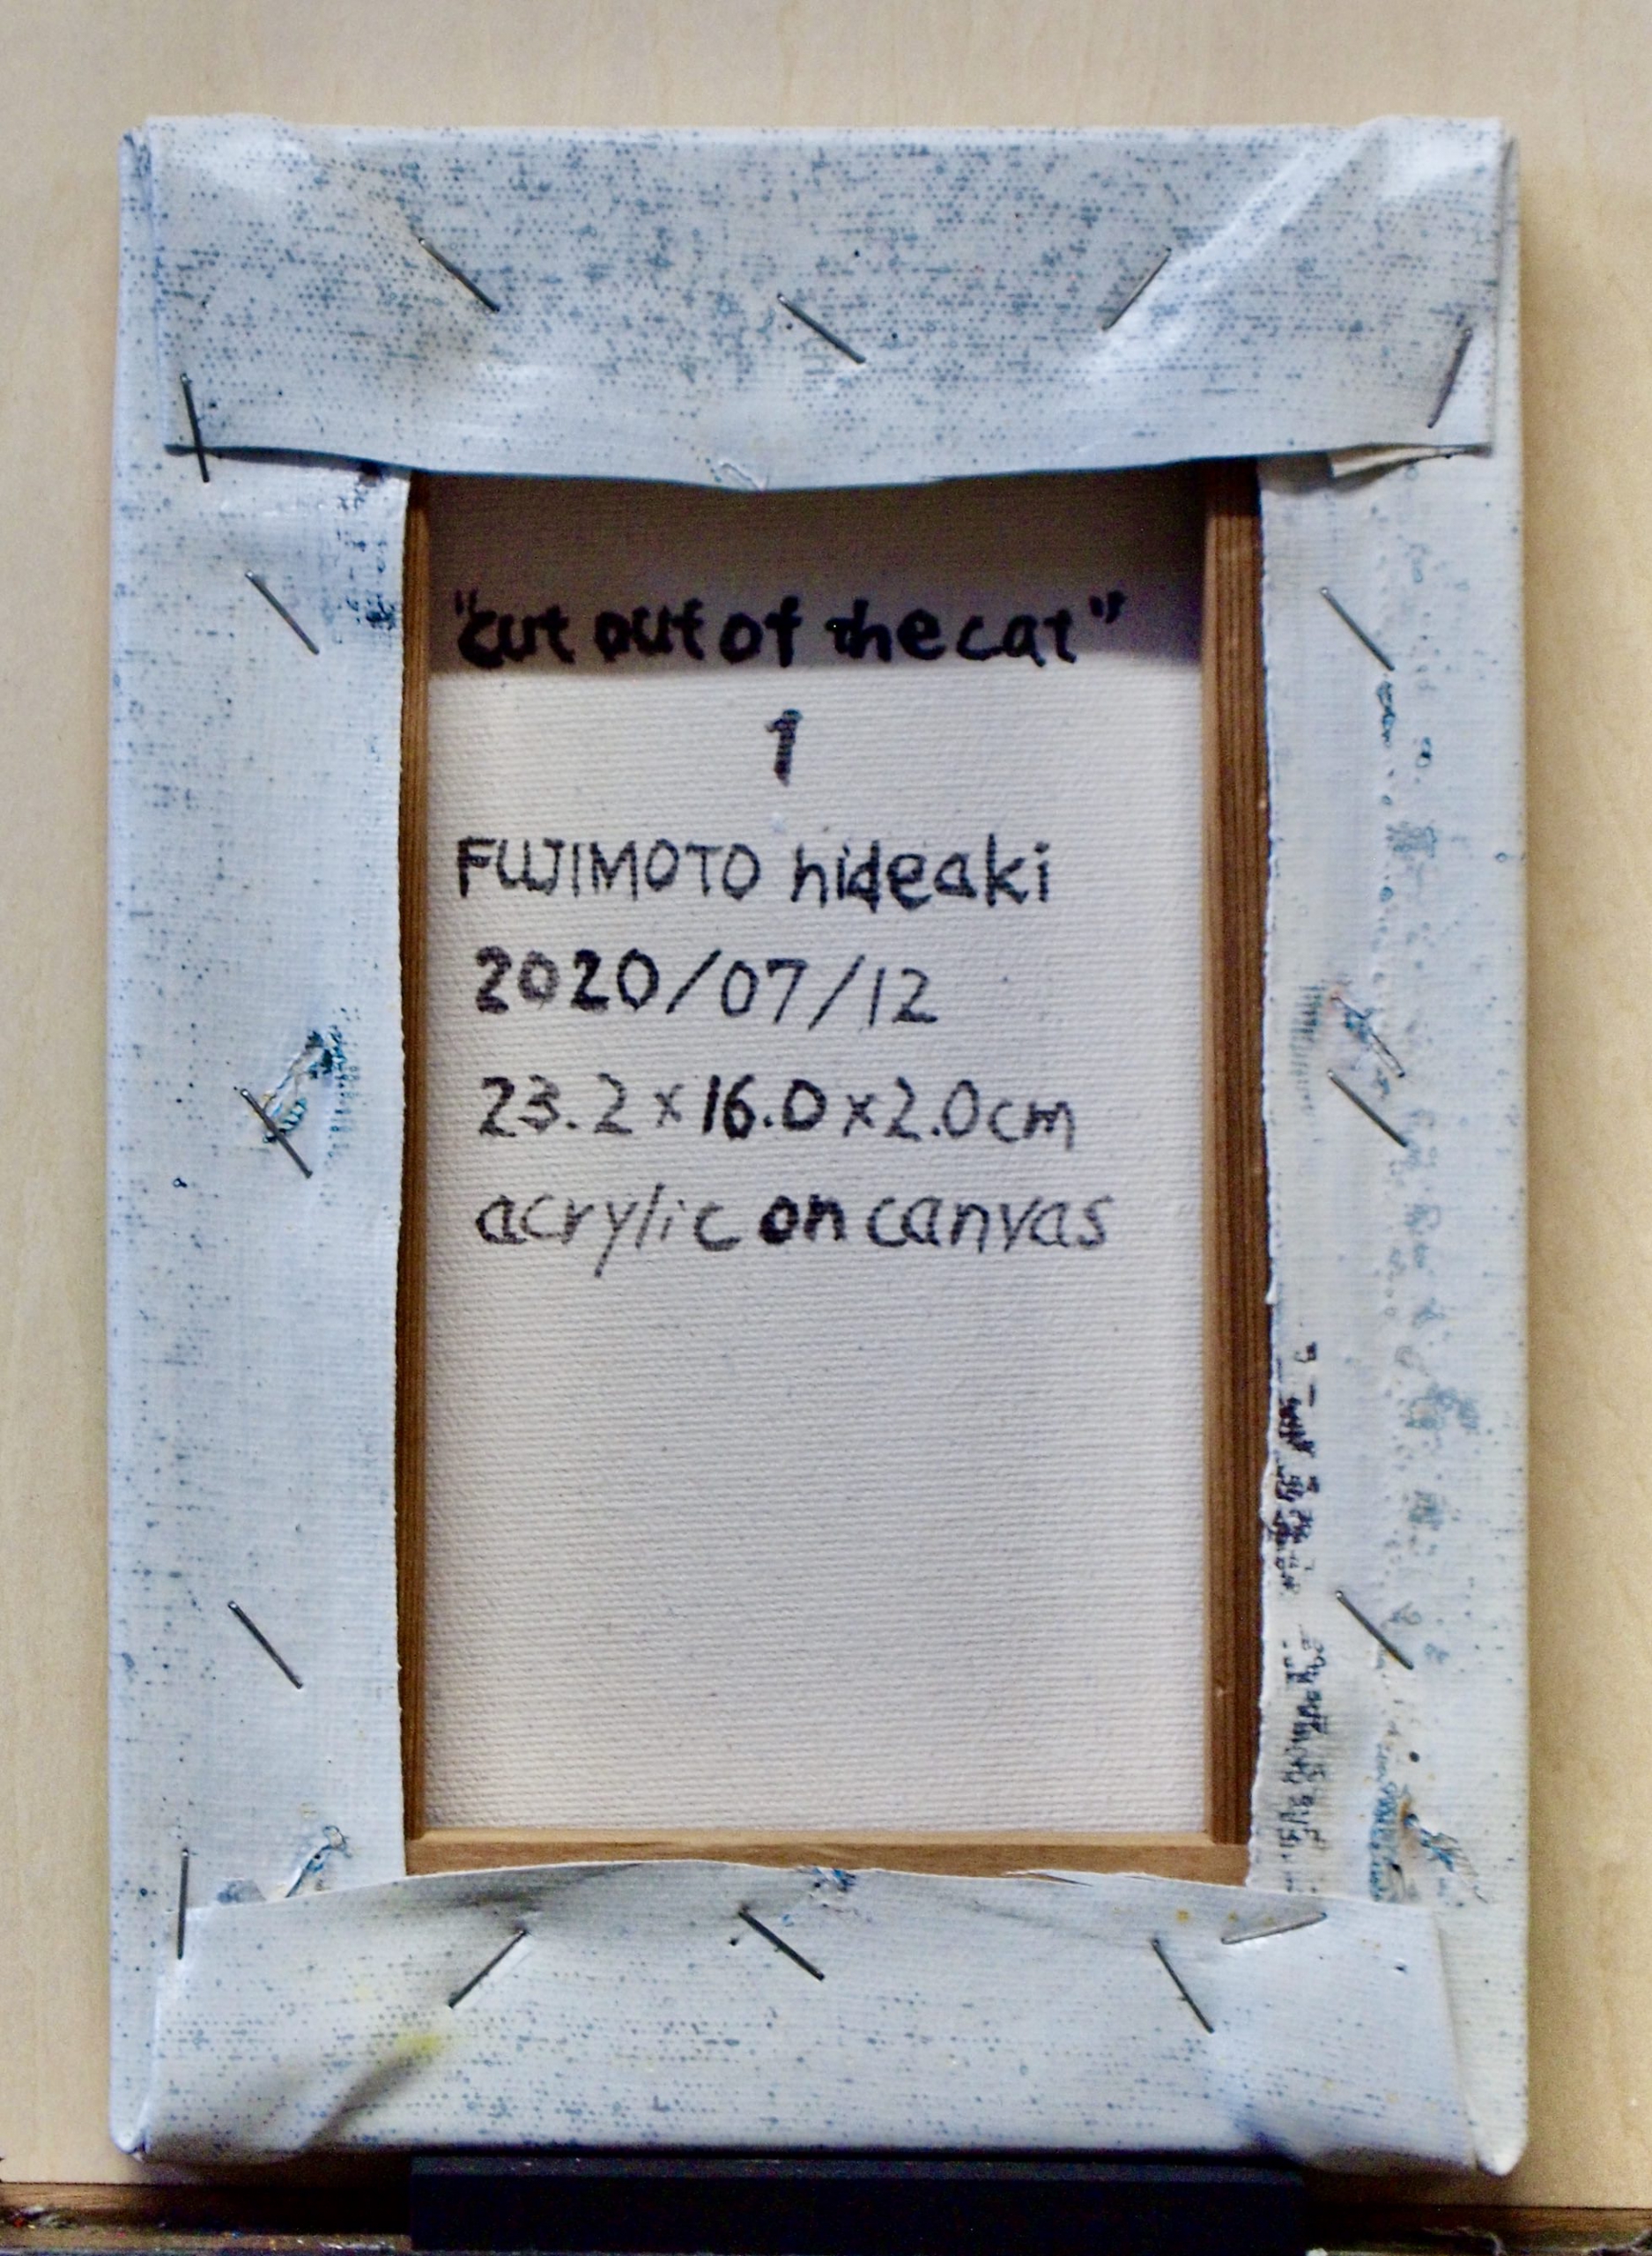 "cut out of the cat"
1
FUJIMOTO hideaki
2020/07/12
23.2×16.0×2.0cm
acrylic on canvas